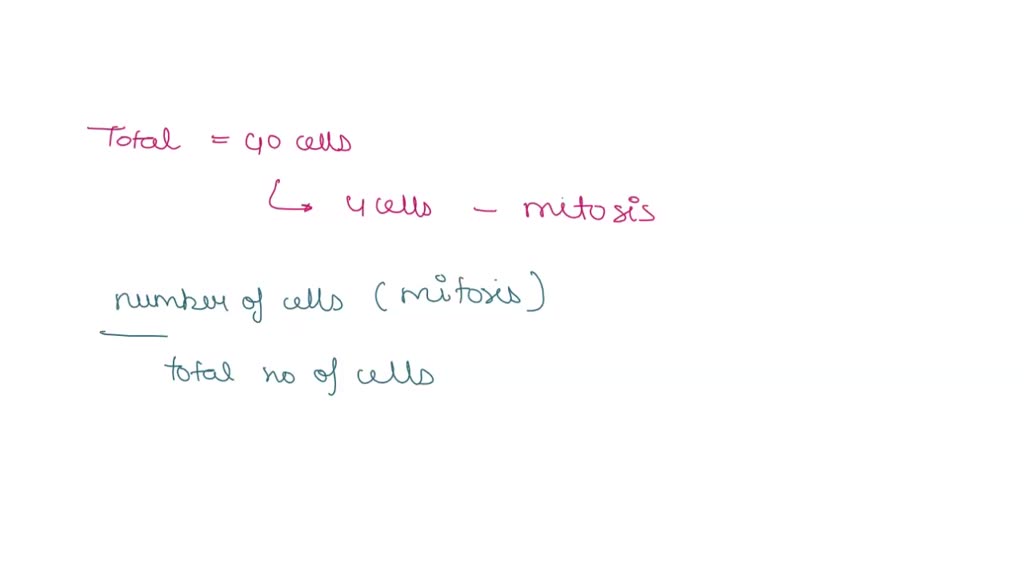 Total = 40 cells
↳ 4 cells - mitosis
number of cells (mitosis)
total no of cells